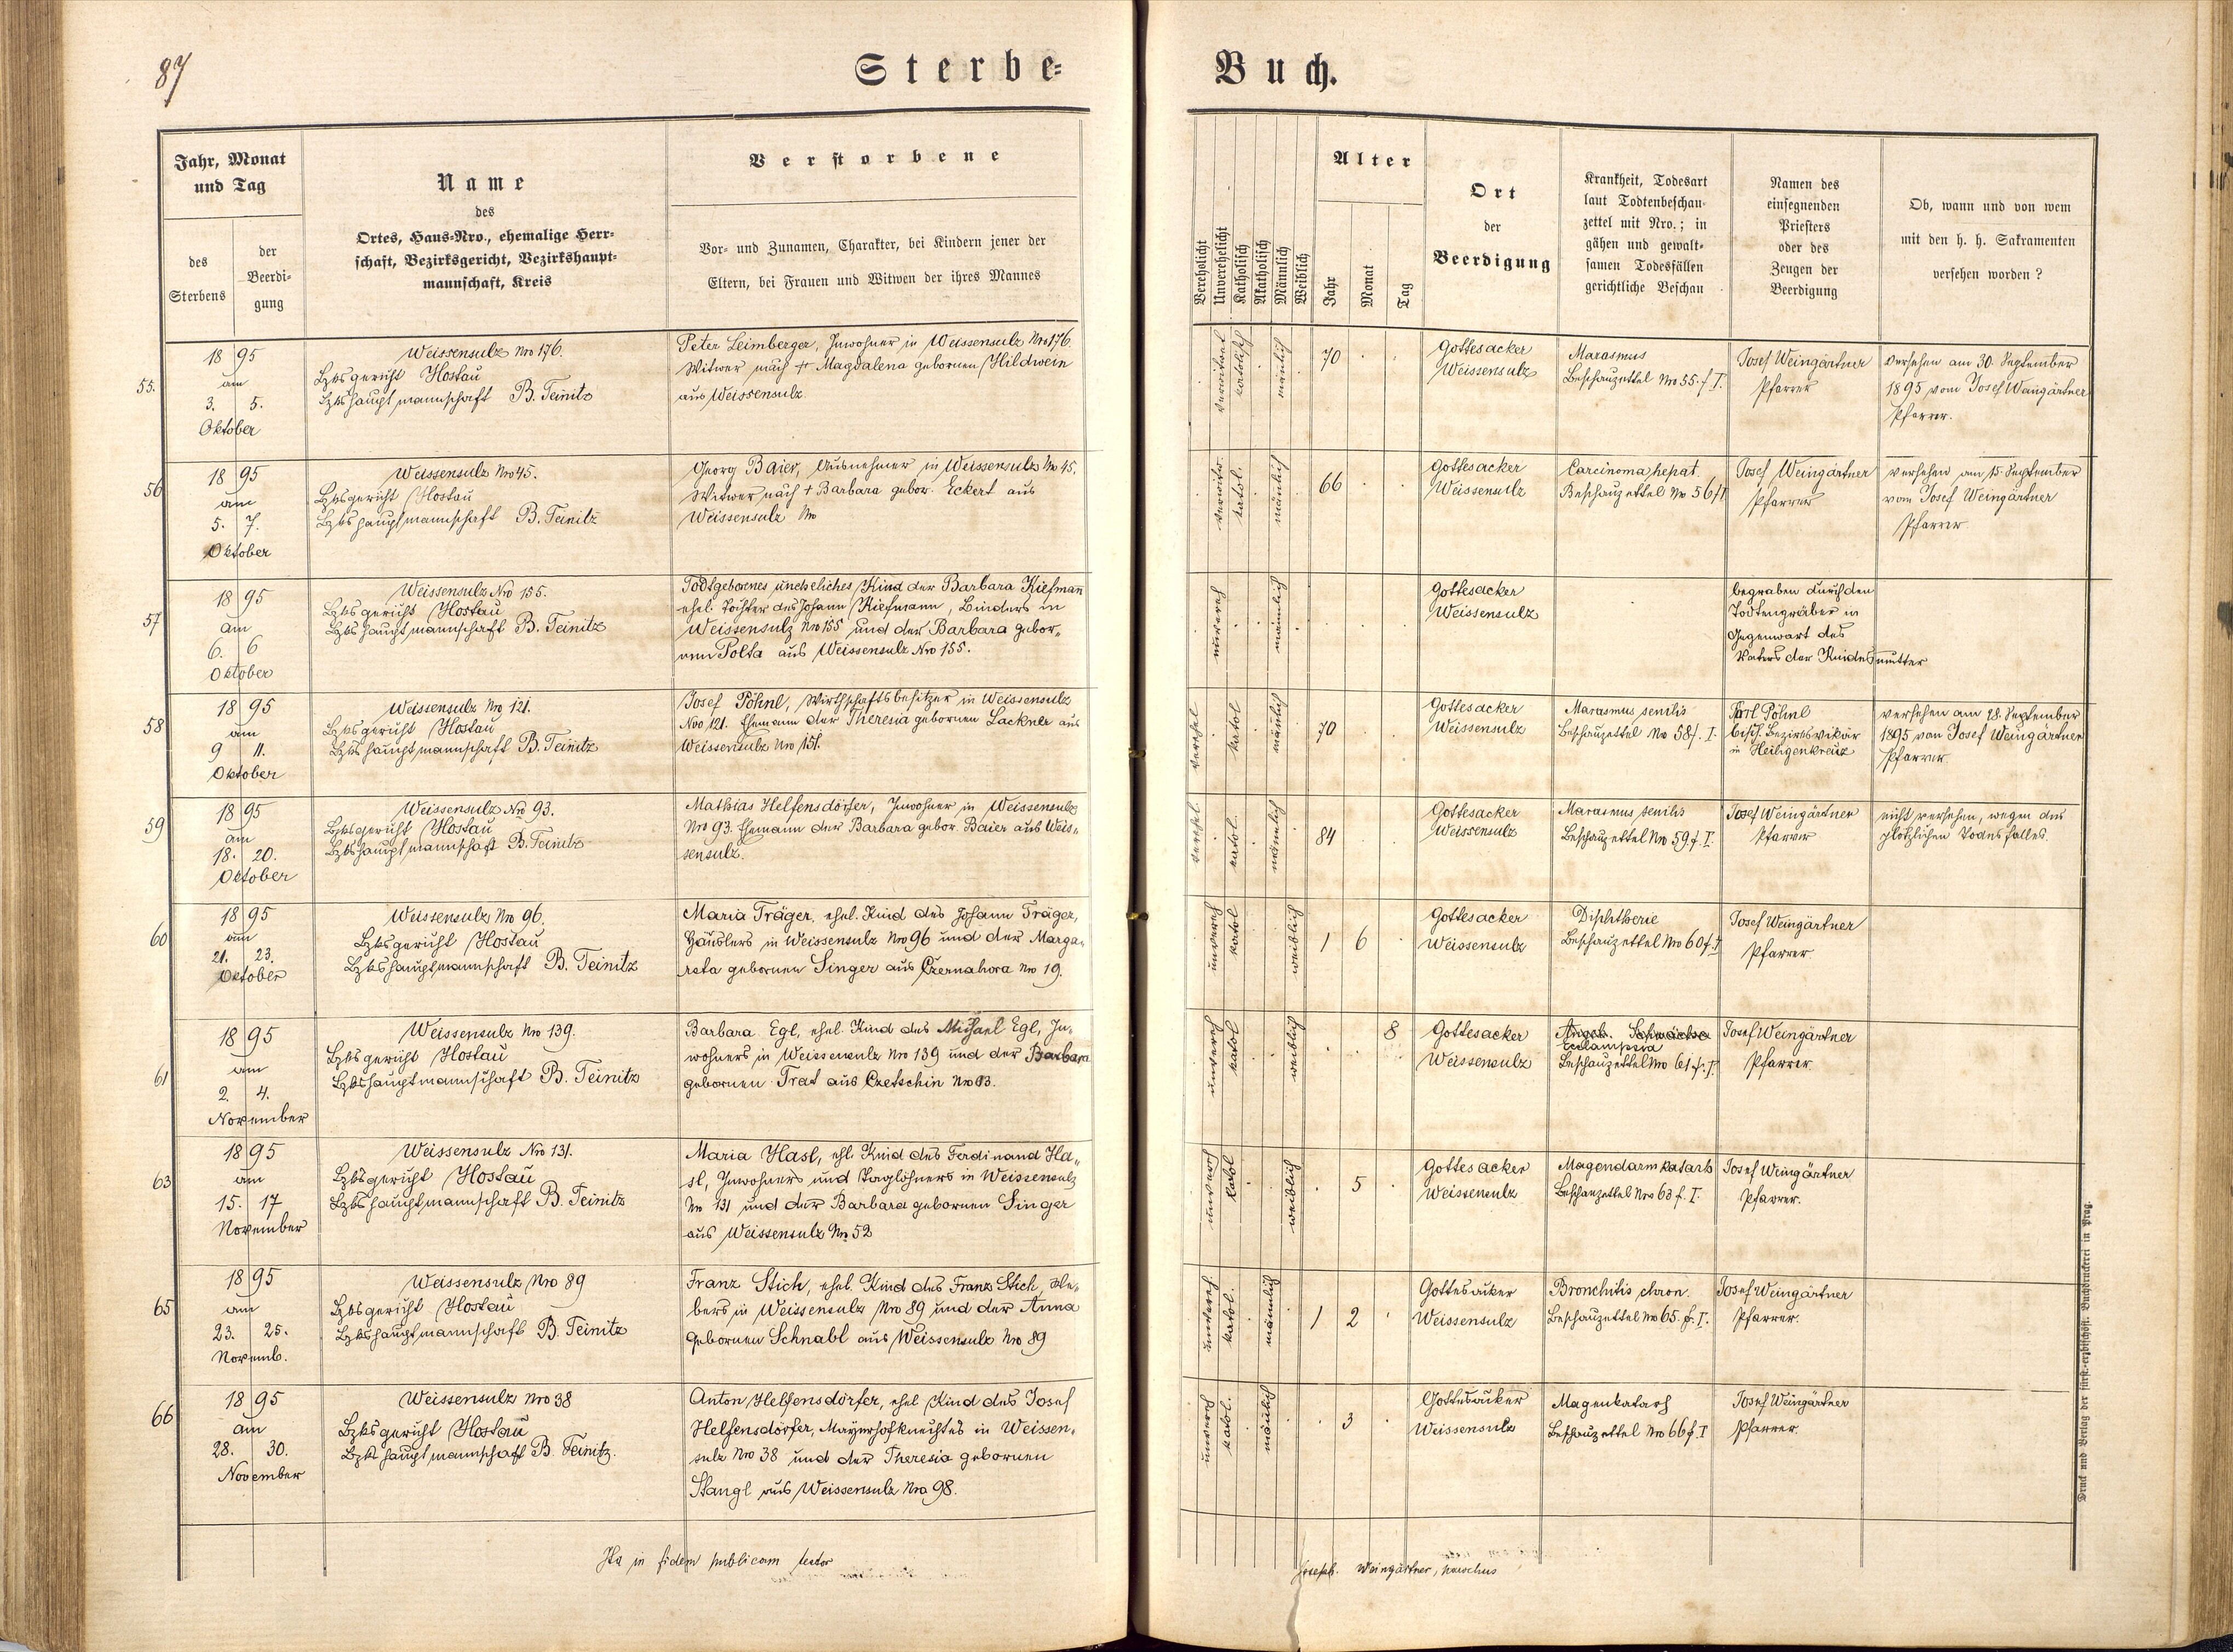 87
Sterbe-
Buch.
Jahr, Monat
und Tag
des
Sterbens
der
Beerdi-
gung
Name
des
Ortes, Haus-Nro., ehemalige Herr-
schaft, Bezirksgericht, Bezirkshaupt-
mannschaft, Kreis
Verstorbene
Vor- und Zunamen, Charakter, bei Kindern jener der
Eltern, bei Frauen und Witwen der ihres Mannes
Verehelicht
Unverehelicht
Katholisch
Akatholisch
Männlich
Weiblich
Alter
Jahr
Monat
Tag
Ort
der
Beerdigung
Krankheit, Todesart
laut Todtenbeschau-
zettel mit Nro.; in
gähen und gewalt-
samen Todesfällen
gerichtliche Beschau
Namen des
einsegnenden
Priesters
oder des
Zeugen der
Beerdigung
Ob, wann und von wem
mit den h. h. Sakramenten
versehen worden?
55.
18 95
am
3. 5.
Oktober
Weissensulz Nro 176.
Bzksgericht Hostau
Bzkshauptmannschaft B. Teinitz
Peter Leimberger, Inwohner in Weissensulz Nro 176.
Witwer nach + Magdalena gebornen Hildwein
aus Weissensulz
verwitwet
katolisch
mänlich
70
Gottesacker
Weissensulz
Marasmus
Beschauzettel Nro 55. f. I.
Josef Weingärtner
Pfarrer
versehen am 30. September
1895 vom Josef Weingärtner
Pfarrer.
56
18 95
am
5. 7.
Oktober
Weissensulz Nro 45.
Bzksgericht Hostau
Bzkshauptmannschaft B. Teinitz
Georg Baier, Ausnehmer in Weissensulz Nro 45.
Witwer nach + Barbara gebor. Eckert aus
Weissensulz Nro
verwitw.
katol.
mänlich
66
Gottesacker
Weissensulz
Carcinoma hepat.
Beschauzettel Nro 56 f I
Josef Weingärtner
Pfarrer
versehen am 15 September
vom Josef Weingärtner
Pfarrer
57
18 95
am
6. 6
Oktober
Weissensulz Nro 155.
Bzksgericht Hostau
Bzkshauptmannschaft B. Teinitz
Todtgebornes uneheliches Kind der Barbara Kiefmann
ehel. Tochter des Johann Kiefmann, Binders in
Weissensulz Nro 155 und der Barbara gebor„
nen Polta aus Weissensulz Nro 155.
unvereh
männlich
Gottesacker
Weissensulz
begraben durch den
Todtengräber in
Gegenwart des
Vaters der Kindesmutter
58
18 95
am
9 11.
Oktober
Weissensulz Nro 121.
Bzksgericht Hostau
Bzkshauptmannschaft B. Teinitz
Josef Pöhnl, Wirthschaftsbesitzer in Weissensulz
Nro 121. Ehemann der Theresia gebornen Lackner aus
Weissensulz Nro 151.
verehel
katol
mänlich
70
Gottesacker
Weissensulz
Marasmus senilis
Beschauzettel Nro 58 f. I.
Karl Pöhnl
bisch. Bezirksvikär
in Heiligenkreuz
versehen am 28. September
1895 von Josef Weingärtner
Pfarrer
59
18 95
am
18. 20.
Oktober
Weissensulz Nro 93.
Bzksgericht Hostau
Bzkshauptmannschaft B. Teinitz
Mathias Helfensdörfer, Inwohner in Weissensulz
Nro 93. Ehemann der Barbara gebor. Baier aus Weis„
sensulz.
verehel
katol.
mänlich
84
Gottesacker
Weissensulz
Marasmus senilis
Beschauzettel Nro 59 f. I.
Josef Weingärtner
Pfarrer
nicht versehen, wegen des
plötzlichen Todesfalles.
60
18 95
am
21. 23.
Oktober
Weissensulz Nro 96.
Bzksgericht Hostau
Bzkshauptmannschaft B. Teinitz
Maria Träger, ehel. Kind des Johann Träger,
Häuslers in Weissensulz Nro 96 und der Marga„
reta gebornen Singer aus Czernahora Nro 19.
unvereh
katol
weiblich
1 6
Gottesacker
Weissensulz
Diphtherie
Beschauzettel Nro 60 f. I
Josef Weingärtner
Pfarrer
61
18 95
am
2. 4.
November
Weissensulz Nro 139.
Bzksgericht Hostau
Bzkshauptmannschaft B. Teinitz
Barbara Egl, ehel. Kind des Michael Egl, In„
wohners in Weissensulz Nro 139 und der Barbara
gebornen Trat aus Czetschin Nro 13.
unvereh
katol
weiblich
8
Gottesacker
Weissensulz
Angeb. Schwäche
Eclampsia
Beschauzettel Nro 61 f. I.
Josef Weingärtner
Pfarrer
63
18 95
am
15. 17
November
Weissensulz Nro 131.
Bzksgericht Hostau
Bzkshauptmannschaft B. Teinitz
Maria Hasl, ehl. Kind des Ferdinand Ha„
sl, Inwohners und Taglöhners in Weissensulz
Nro 131 und der Barbara gebornen Singer
aus Weissensulz Nro 52
unvereh
katol
weiblich
5
Gottesacker
Weissensulz
Magendarmkatarh
Beschauzettel Nro 63 f. I.
Josef Weingärtner
Pfarrer.
65
18 95
am
23. 25.
Novemb.
Weissensulz Nro 89
Bzksgericht Hostau
Bzkshauptmannschaft B. Teinitz
Franz Stich, ehel. Kind des Franz Stich, We„
bers in Weissensulz Nro 89 und der Anna
gebornen Schnabl aus Weissensulz Nro 89
unvereh.
katol.
männlich
1 2
Gottesacker
Weissensulz
Bronchitis chron.
Beschauzettel Nro 65. f. I.
Josef Weingärtner
Pfarrer.
66
18 95
am
28. 30.
November
Weissensulz Nro 38
Bzksgericht Hostau
Bzkshauptmannschaft B. Teinitz.
Anton Helfensdörfer, ehel Kind des Josef
Helfensdörfer, Mayerhofknechtes in Weissen„
sulz Nro 38 und der Theresia gebornen
Stangl aus Weissensulz Nro 98.
unvereh
katol.
mänlich
3
Gottesacker
Weissensulz
Magenkatarh
Beschauzettel Nro 66 f. I
Josef Weingärtner
Pfarrer.
Ita in fidem publicam testor
Joseph. Weingärtner, parochus
Druck und Verlag der fürst.-erzbischöfl. Buchdruckerei in Prag.